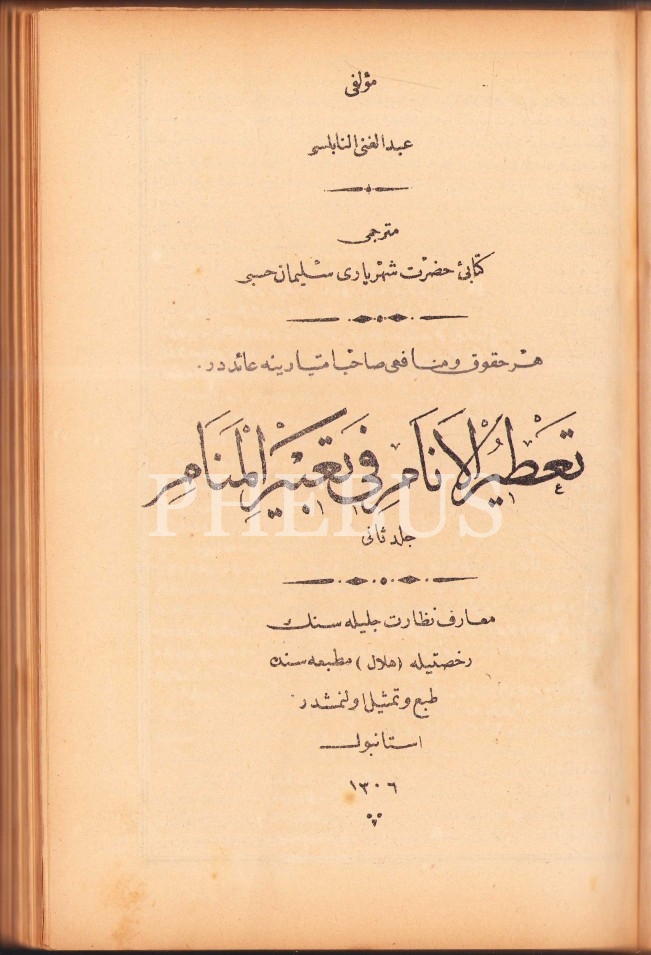 مؤلفى
عبدالغنى النابلسى
مترجمى
كتابئ حضرت شهريارى سليمان حسبى
هر حقوق و منافعى صاحب امتيازينه عائددر.
تعطير الانام فى تعبير المنام
PHEBUS
جلد ثانى
معارف نظارت جليله سنك
رخصتيله (هلال) مطبعه سنده
طبع و تمثيل اولنمشدر
استانبول
١٣٠٦